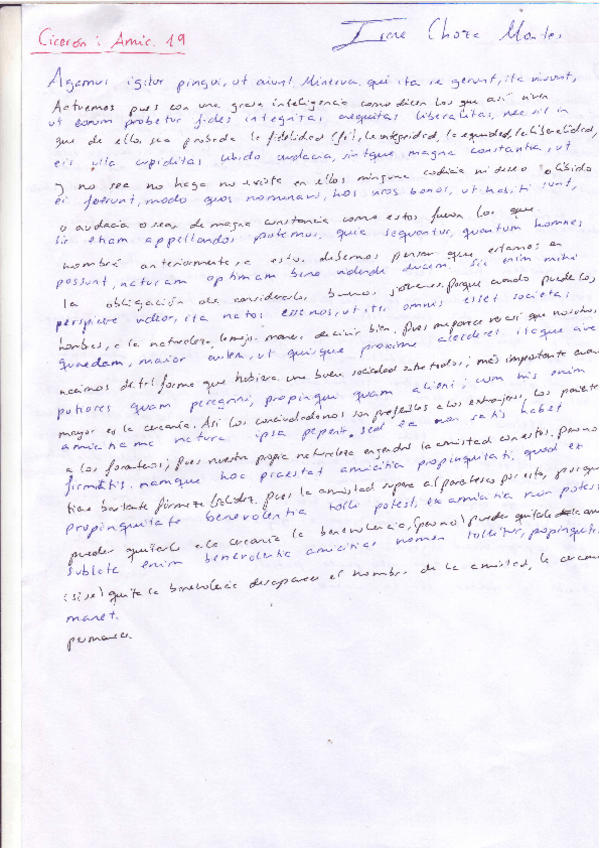 Cicerón: Amic. 19
Irene Chora Montes
Agamus igitur pingui, ut aiunt Minerva. qui ita se gerunt, ita vivunt,
Actuemos pues con una grasa inteligencia como dicen los que así viven
ut eorum probetur fides integritas, aequitas liberalitas, nec sit in
que de ellos sea probada la fidelidad (fe), la integridad, la equidad, la liberalidad,
eis ulla cupiditas libido audacia, sintque magna constantia, ut
y no sea no haga no exista en ellos ninguna codicia ni deseo o libido
ei fuerunt, modo quos nominavi, hos viros bonos, ut habiti sunt,
o audacia o sean de magna constancia como estos fueron los que
sic etiam appellandos putemus, quia sequantur, quantum homines
nombré anteriormente, a estos debemos pensar que estamos en
possunt, naturam optimam bene vivendi ducem. Sic enim mihi
la obligación de considerarlos buenos porque cuando puede los
perspicere videor, ita natos esse nos, ut inter omnis esset societas
hombres, a la naturaleza, la mejor manera de vivir bien. Pues me parece ver así que nosotros
quaedam, maior autem, ut quisque proxime accederet. itaque cive
nacimos de tal forme que hubiera una buena sociedad entre todos; más importante cuan
potiores quam peregrini, propinqui quam alieni; cum his enim
mayor es la cercanía. Así los conciudadanos son preferibles a los extranjeros, los pariente
amicitiam natura ipsa peperit, sed ea non satis habet
a los foraneos; pues nuestra propia naturaleza engendró la amistad con estos. pero no
firmitatis. namque hoc praestat amicitia propinquitati, quod ex
tiene bastante firmeza/solidez. pues la amistad supera al parentesco por esto, porque
propinquitate benevolentia tolli potest, ex amicitia non potest
pueden quitarle a la cercanía la benevolencia, (pero no) pueden quitarle de la am
sublata enim benevolentia amicitiae nomen tollitur, propinquit
(si se) quita la benevolencia desaparece el nombre de la amistad, la cercan
manet.
permanece.